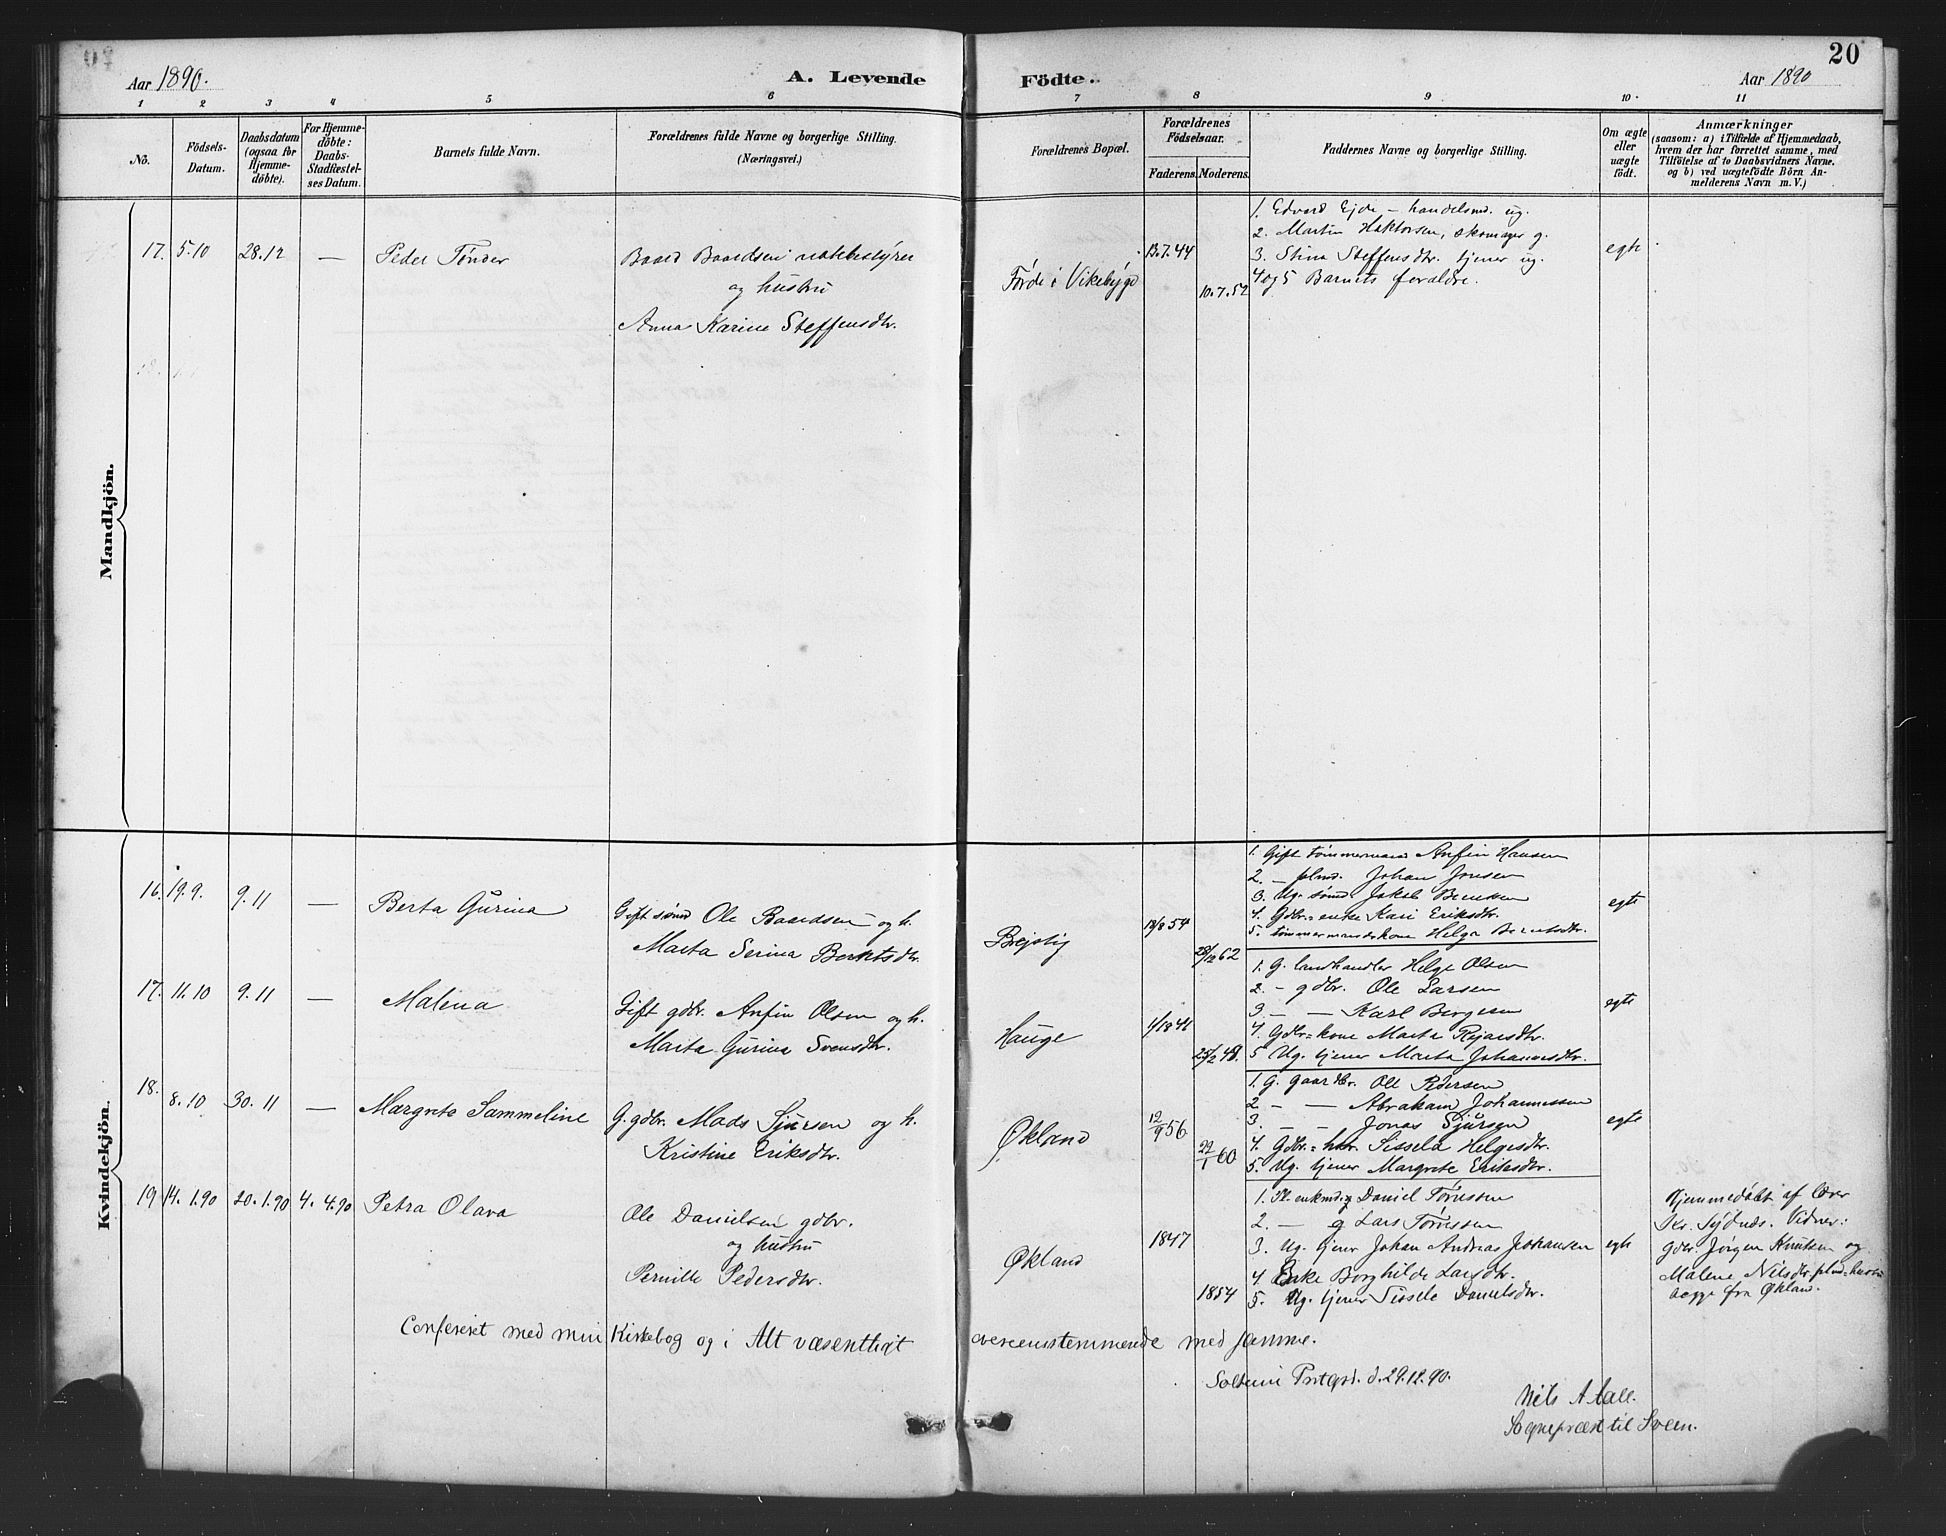 20
Aar 1890.
A. Levende Födte.
Aar 1890
1 2 3 4 5 6 7 8 9 10 11
No.
Födsels-Datum.
Daabsdatum (ogsaa for Hjemme-döbte).
For Hjemme-döbte: Daabs-Stadfæstel-ses Datum.
Barnets fulde Navn.
Forældrenes fulde Navne og borgerlige Stilling. (Næringsvei.)
Forældrenes Bopæl.
Forældrenes Födselsaar.
Faderens. Moderens.
Faddernes Navne og borgerlige Stilling.
Om ægte eller uægte födt.
Anmærkninger
(saasom: a) i Tilfælde af Hjemmedaab,
hvem der har forrettet samme, med
Tilföielse af to Daabsvidners Navne.
og b) ved uægtefödte Börn An-
melderens Navn m. V.)
Mandkjön.
17. 5.10 28.12 — Peder Tønder
Baard Baardsen notebestyrer
og hustru
Anna Karine Steffensdtr.
Førde i Vikebygd
13.7.44
10.7.52
1. Edvard Ejde — handelsmd. ug.
2. Martin Haktorsen, skomager g.
3. Stina Steffensdtr. tjener ug.
4 og 5 Barnets forældre.
egte
Kvindekjön.
16. 19.9. 9.11 — Berta Gurina
Gift Ole Baardsen og h.
Marta Serina Berntsdtr.
18/8 54
28/12 62
1. Gift tømmermand Anfin Hansen
2. — plmd. Johan Jonsen
3. Ug. Jakob
4. Gdbr. enke Kari Eriksdtr.
5. tømmermandskone Helga Berntsdtr.
egte
17. 11.10 9.11 — Malena
Gift gdbr. Anfin Olsen og h.
Marta Gurina Svensdtr.
Hauge
1/1 1841
25/2 48.
1. G. landhandler Helge Olsen
2. — gdbr. Ole Larsen
3. — — Karl Børgesen
4. Gdbr. kone Marta
5 Ug. tjener Marta Johannesdtr.
egte
18. 8.10 30.11 — Margrete Sammeline
G. gdbr. Mads Sjursen og h.
Kristine Eriksdtr.
Økland
12/9 56
22/1 60
1. G. gaardbr. Ole Pedersen
2. — — Abraham Johannessen
3. — — Jonas Sjursen
4. Gdbr. Sissela Helgesdtr.
5. Ug. tjener Margrete Eriksdtr.
egte
19 14.1.90 20.1.90 4.4.90 Petra Olava
Ole Danielsen gdbr.
og hustru
Pernille Pedersdtr.
Økland
1847
1854
1. enkmd. Daniel Tørresen
2. — g Lars Tørresen
3. Ug. tjener Johan Andreas Johansen
4. Enke Borghilde Larsdtr.
5. Ug. tjener Sissele Danielsdtr.
egte
Hjemmedøbt af Lærer
Kr. Sydnes. Vidner:
gdbr. Jørgen Knutsen og
Malene Nilsdtr plmd-hustru
begge fra Økland.
Confereret med min Kirkebog og i Alt væsentligt overensstemmende med samme.
d. 29.12.90.
Nils Aall.
Sognepræst til Sveen.